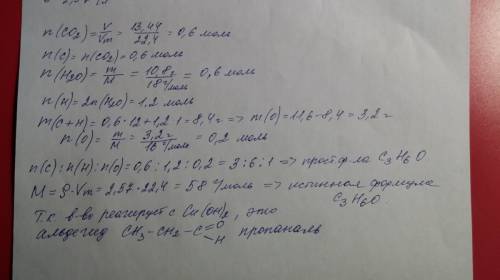 n(CO₂) = V/Vm = 13,44/22,4 = 0,6 моль
n(C) = n(CO₂) = 0,6 моль
n(H₂O) = m/M = 10,8г/18г/моль = 0,6 моль
n(H) = 2n(H₂O) = 1,2 моль
m(C+H) = 0,6·12+1,2·1 = 8,4г => m(O) = 11,6-8,4 = 3,2г
n(O) = m/M = 3,2г/16г/моль = 0,2 моль
n(C):n(H):n(O) = 0,6:1,2:0,2 = 3:6:1 => прост ф-ла C₃H₆O
M = ρ·Vm = 2,57·22,4 = 58 г/моль => истинная формула
C₃H₆O
Т.к в-во реагирует с Cu(OH)₂, это
альдегид CH₃-CH₂-C=O H пропаналь